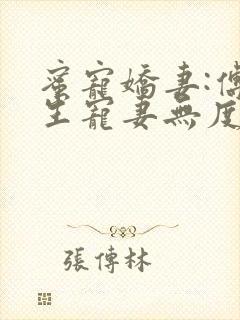 蜜寵嬌妻:傅
生寵妻無度
張傳林